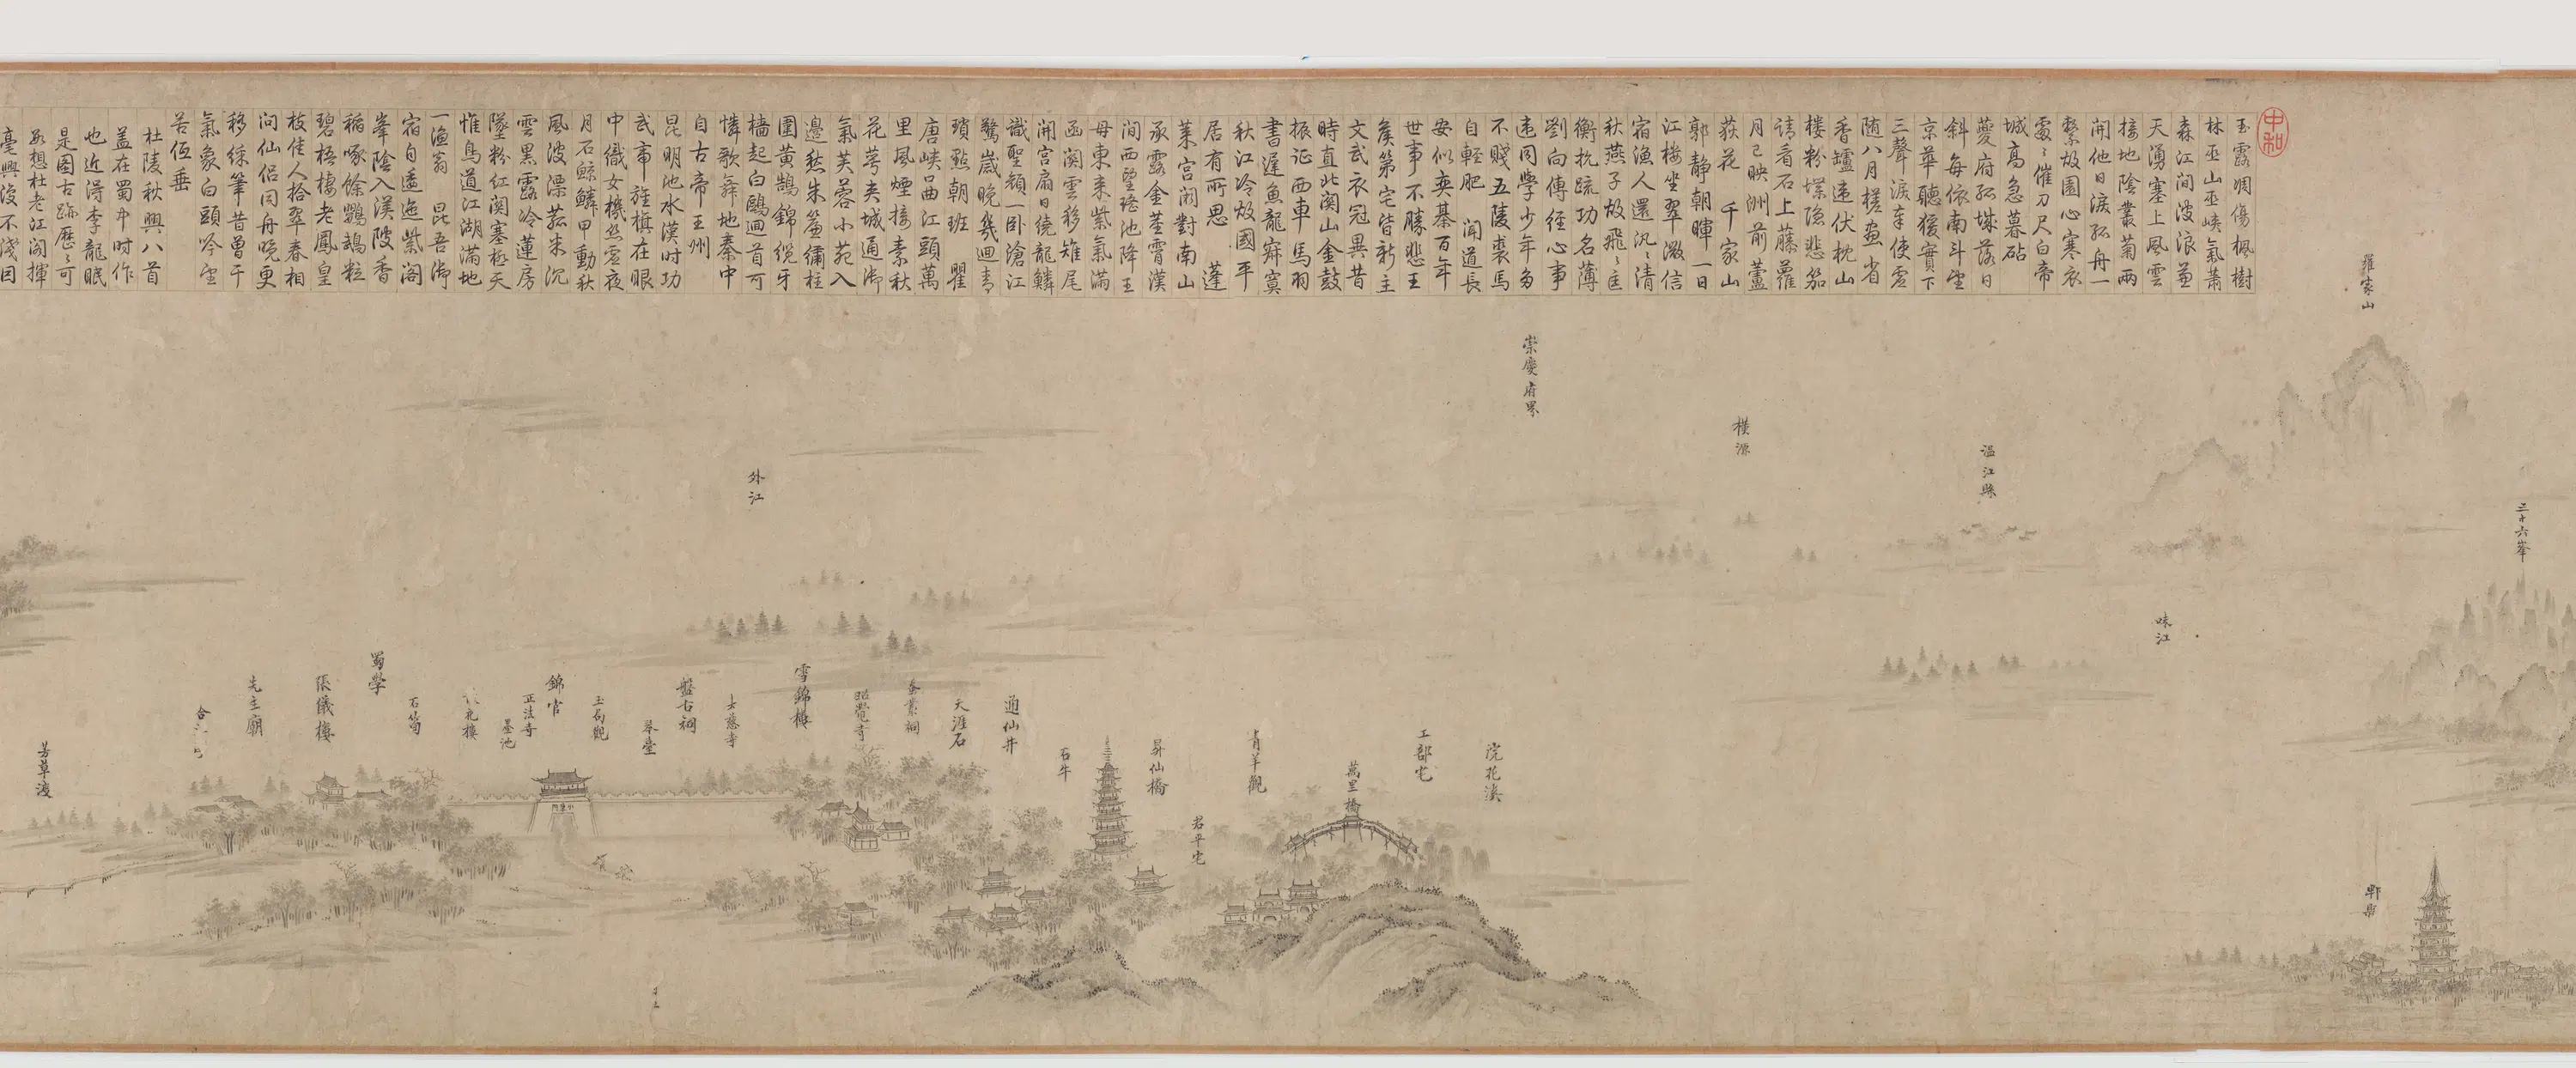 中和
玉露凋傷楓樹
林巫山巫峽氣蕭
森江間波浪蒹
天湧塞上風雲
接地陰叢菊兩
開他日淚孤舟一
繫故園心寒衣
處〻催刀尺白帝
城高急暮砧
夔府孤城落日
斜每依南斗望
京華聽猨實下
三聲淚奉使虛
随八月槎畫省
香罏違伏枕山
楼粉堞隐悲笳
請看石上藤蘿
月已映洲前蘆
荻花 千家山
郭静朝暉一日
江楼坐翠微信
宿漁人還汎〻清
秋燕子故飛〻匡
衡抗疏功名薄
劉向傳經心事
違同學少年多
不賤五陵裘馬
自輕肥 聞道長
安似奕棊百年
世事不勝悲王
矦第宅皆新主
文武衣冠異昔
時直北関山金鼓
振征西車馬羽
書遲魚龍寂寞
秋江冷故國平
居有所思 蓬
莱宮闕對南山
承露金莖霄漢
间西望瑶池降王
母東来紫氣滿
函関雲移雉尾
開宮扇日繞龍鱗
識聖顏一卧滄江
驚嵗晚幾迴青
瑣點朝班 瞿
唐峡口曲江頭萬
里風煙接素秋
花萼夹城通御
氣芙蓉小苑入
邊愁朱簾繡柱
圍黄鵠錦纜牙
檣起白鷗迴首可
憐歌舞地秦中
自古帝王州
昆明池水漢时功
武帝旌旗在眼
中織女機丝虚夜
月石鯨鱗甲動秋
風波漂菰米沉
雲黒露冷蓮房
墜粉红関塞極天
惟鳥道江湖滿地
一漁翁 昆吾御
宿自逶迤紫阁
峯陰入渼陂香
稲啄餘鸚鵡粒
碧梧棲老鳳皇
枝佳人拾翠春相
问仙侣同舟晚更
移綵筆昔曾干
氣象白頭吟望
苦低垂
杜陵秋興八首
盖在蜀中时作
也近得李龍眠
是圖古跡歴〻可
想杜老江阁揮
毫興復不淺因
羅家山
三十六峯
味江
温江縣
横源
崇慶府界
郫縣
浣花溪
工部宅
萬里橋
青羊觀
君平宅
昇仙橋
石牛
通仙井
天涯石
蚕叢祠
昭覺寺
雪錦樓
大慈寺
盤古祠
琴臺
玉局觀
錦官
正法寺
墨池
石筍
蜀學
張儀樓
先主廟
芳草渡
外江